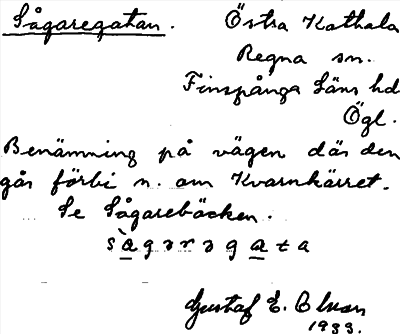 Sågaregatan. Östra Kathala
Regna sn.
Finspånga läns hd
Ögl.
Benämning på vägen där den
går förbi n. om Kvarnkärret.
Se Sågarebäcken.
sàgarəgata
Gustaf E. Olsson
1933.